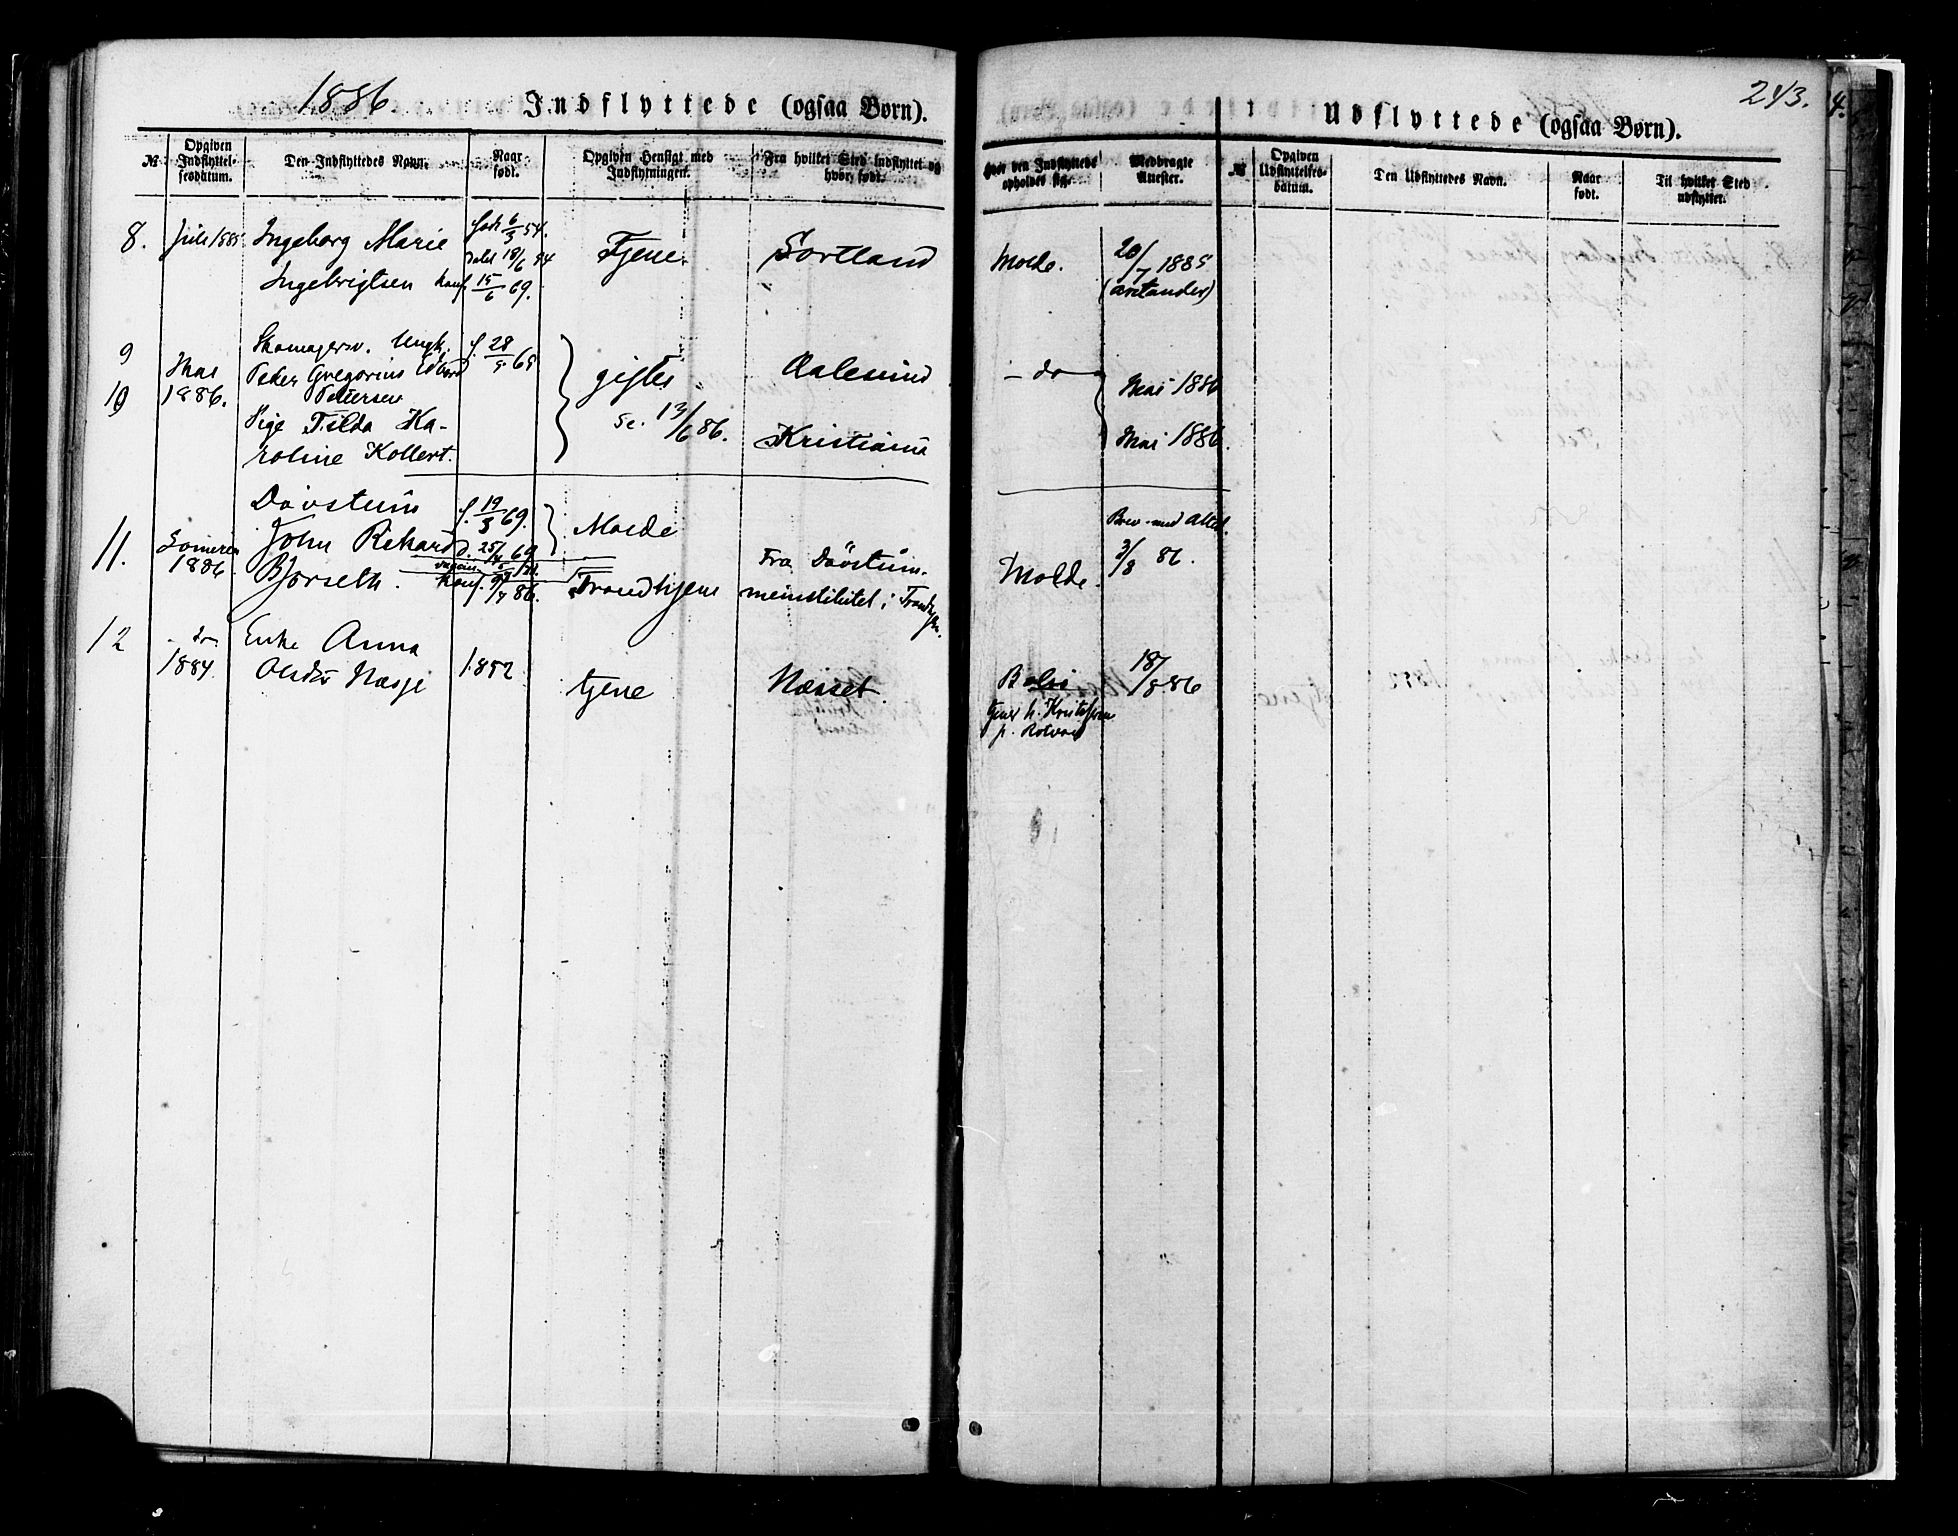 1886
Indflyttede (ogsaa Børn).
№
Opgiven Indflyttelsesdatum.
Den Indflyttedes Navn.
Naar født.
Opgiven Hensigt med Indflytningen.
Fra hvilket Sted indflyttet og hvor født.
8.
Juli 1885
Ingeborg Marie
Ingebrigtsen
født 6/3 54.
døbt 18/6 54
konf. 15/6 69.
Tjene.
Sortland
9
10
Mai
1886.
Skomagersv. Ungk.
Peter Gregorius Edvard
Petersen
Pige Tilda Ka-
roline Kollert.
f. 28/5 65
giftes
13/6 86.
Aalesund
Kristiania
11.
1886.
Døvstum
John Rikard
Bjørseth.
f. 19/3 69.
d. 25/4 69
konf. 86.
Molde
Trondhjem
Fra Døvstum-
meinstitutet i Trondhjem.
12
- do -
1884.
Enke Anna
Næsje
1852
tjene
Næsset
243.
Udflyttede (ogsaa Børn).
Hvor den Indflyttede opholder sig.
Medbragte Attester.
№
Opgiven Udflyttelsesdatum.
Den Udflyttedes Navn.
Naar født.
Til hvilket Sted udflyttet.
Molde.
20/7 1885
- do -
Mai 1886
Mai 1886.
Molde.
Brev med Attest
3/8 86.
Bolsø
tjener h.
p.
18/8 86